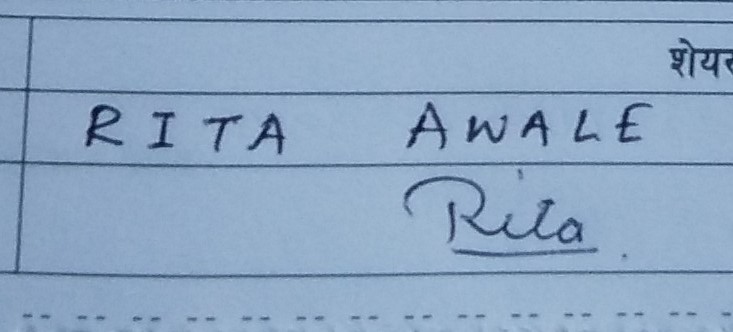 शेयर
RITA AWALE
Rita